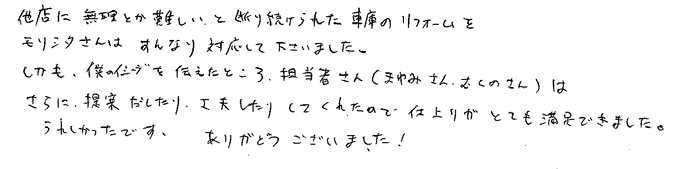 他店に無理とか難しいと断り続けられた車庫のリフォームを
モリシタさんはすんなり対応して下さいました。
しかも、僕のイメージを伝えたところ、担当者さん(まゆみさん、むくのさん)は
さらに、提案だしたり、工夫したりしてくれたので仕上りがとても満足できました。
うれしかったです、ありがとうございました!